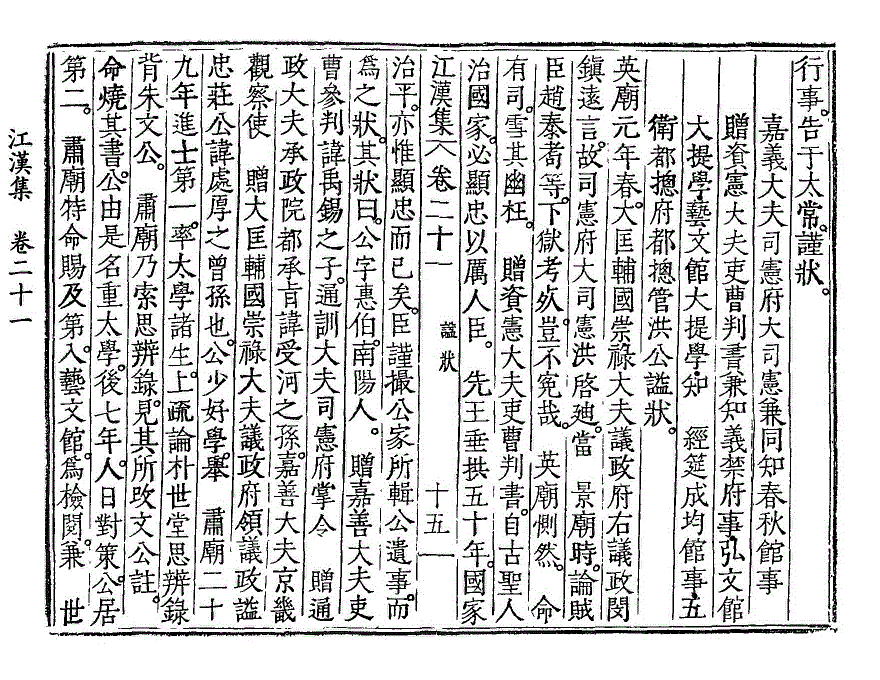 行事。告于太常。謹狀。
嘉義大夫司憲府大司憲兼同知春秋館事
贈資憲大夫吏曹判書兼知義禁府事弘文館
大提學藝文館大提學知 經筵成均館事五
衛都摠府都摠管洪公謚狀。
英廟元年春。大匡輔國崇祿大夫議政府右議政閔
鎭遠言。故司憲府大司憲洪啓迪。當 景廟時。論賊
臣趙泰耉等。下獄考死。豈不寃哉。 英廟惻然。 命
有司。雪其幽枉。 贈資憲大夫吏曹判書。自古聖人
治國家。必顯忠以厲人臣。 先王垂拱五十年。國家
江漢集 卷二十一 謚狀 十五
治平。亦惟顯忠而已矣。臣謹撮公家所輯公遺事。而
爲之狀。其狀曰。公字惠伯。南陽人。 贈嘉善大夫吏
曹參判諱禹錫之子。通訓大夫司憲府掌令 贈通
政大夫承政院都承旨諱受河之孫。嘉善大夫京畿
觀察使 贈大匡輔國崇祿大夫議政府領議政謚
忠莊公諱處厚之曾孫也。公少好學。擧 肅廟二十
九年進士第一。率太學諸生。上疏論朴世堂思辨錄
背朱文公。 肅廟乃索思辨錄。見其所攻文公註。
命燒其書。公由是名重太學。後七年。人日對策。公居
第二。 肅廟特命賜及第。入藝文館。爲檢閱。兼 世
江漢集 卷二十一